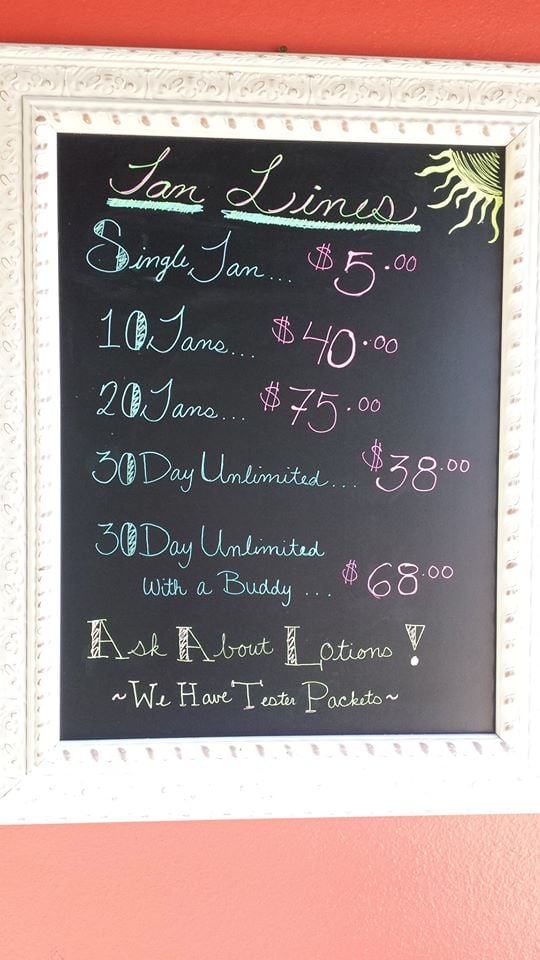 Tan Lines
Single Tan... $5.00
10 Tans... $40.00
20 Tans... $75.00
30 Day Unlimited... $38.00
30 Day Unlimited
With a Buddy... $68.00
Ask About Lotions!
~We Have Tester Packets~